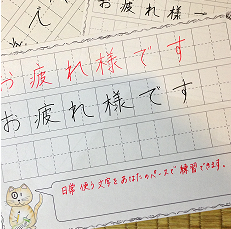 お疲れ様
お疲れ様です
お疲れ様です
日常使う文字をあなたのペースで練習できます。